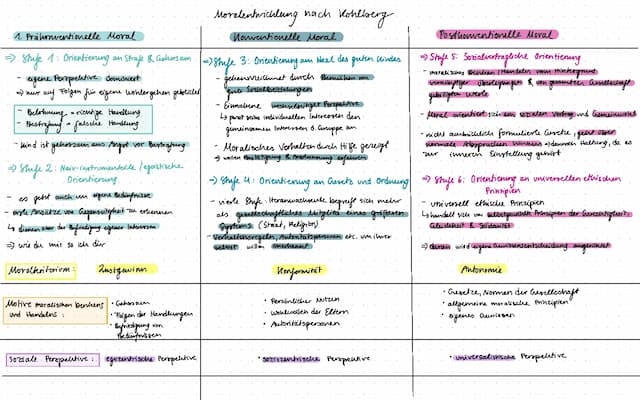 Moralentwicklung nach Kohlberg
1. Präkonventionelle Moral
⇒ Stufe 1: Orientierung an Strafe & Gehorsam
- eigene Perspektive dominiert
→ nur auf Folgen für eigene Wohlergehen
- Belohnung = richtige Handlung
- Bestrafung = falsche Handlung
- Kind ist gehorsam aus Angst vor Bestrafung
⇒ Stufe 2: Naiv-instrumentelle / egoistische
Orientierung
- es geht auch um eigene Bedürfnisse
- erste Ansätze von Gegenseitigkeit zu erkennen
↳ dienen aber der Befriedigung eigener Interessen
⇒ wie du mir so ich dir
Konventionelle Moral
⇒ Stufe 3: Orientierung am Ideal des guten Kindes
- gekennzeichnet durch Bemühen um
gute Sozialbeziehungen
- Einnahme wechselseitiger Perspektive
↳ passt seine individuellen Interessen den
gemeinsamen Interessen d. Gruppe an
- Moralisches Verhalten durch Hilfe gezeigt
→ wollen & Anerkennung erfahren
⇒ Stufe 4: Orientierung an Gesetz und Ordnung
- vierte Stufe: Heranwachsende begreift sich mehr
als gesellschaftliches Mitglied eines größeren
Systems (Staat, Religion)
- Verhaltensregeln, Autoritätspersonen etc. um ihrer
selbst willen anerkannt
Postkonventionelle Moral
⇒ Stufe 5: Sozialvertragliche Orientierung
- moralisches Denken/Handeln vom Hintergrund
vernünftiger & von gesamten Gesellschaft
gebilligten Werte
- Moral orientiert sich am sozialen Vertrag und Gemeinwohl
- nicht ausdrücklich formulierte Gesetze,
normale
zur inneren Einstellung gehört
⇒ Stufe 6: Orientierung an universellen ethischen
Prinzipien
- universell ethische Prinzipien
↳ handelt sich um Prinzipien der Gerechtigkeit,
Gleichheit & Solidarität
⇒ daran wird eigene Gewissensentscheidung ausgerichtet
Moralkriterium: Lustgewinn Konformität Autonomie
Motive moralischen Denkens
und Handelns:
• Gehorsam
• Folgen der Handlungen
• Befriedigung von
Bedürfnissen
• Persönlicher Nutzen
• Wohlwollen der Eltern
• Autoritätspersonen
• Gesetze, Normen der Gesellschaft
• allgemeine moralische Prinzipien
• eigenes Gewissen
Soziale Perspektive: egozentrische Perspektive • soziozentrische Perspektive • universalistische Perspektive